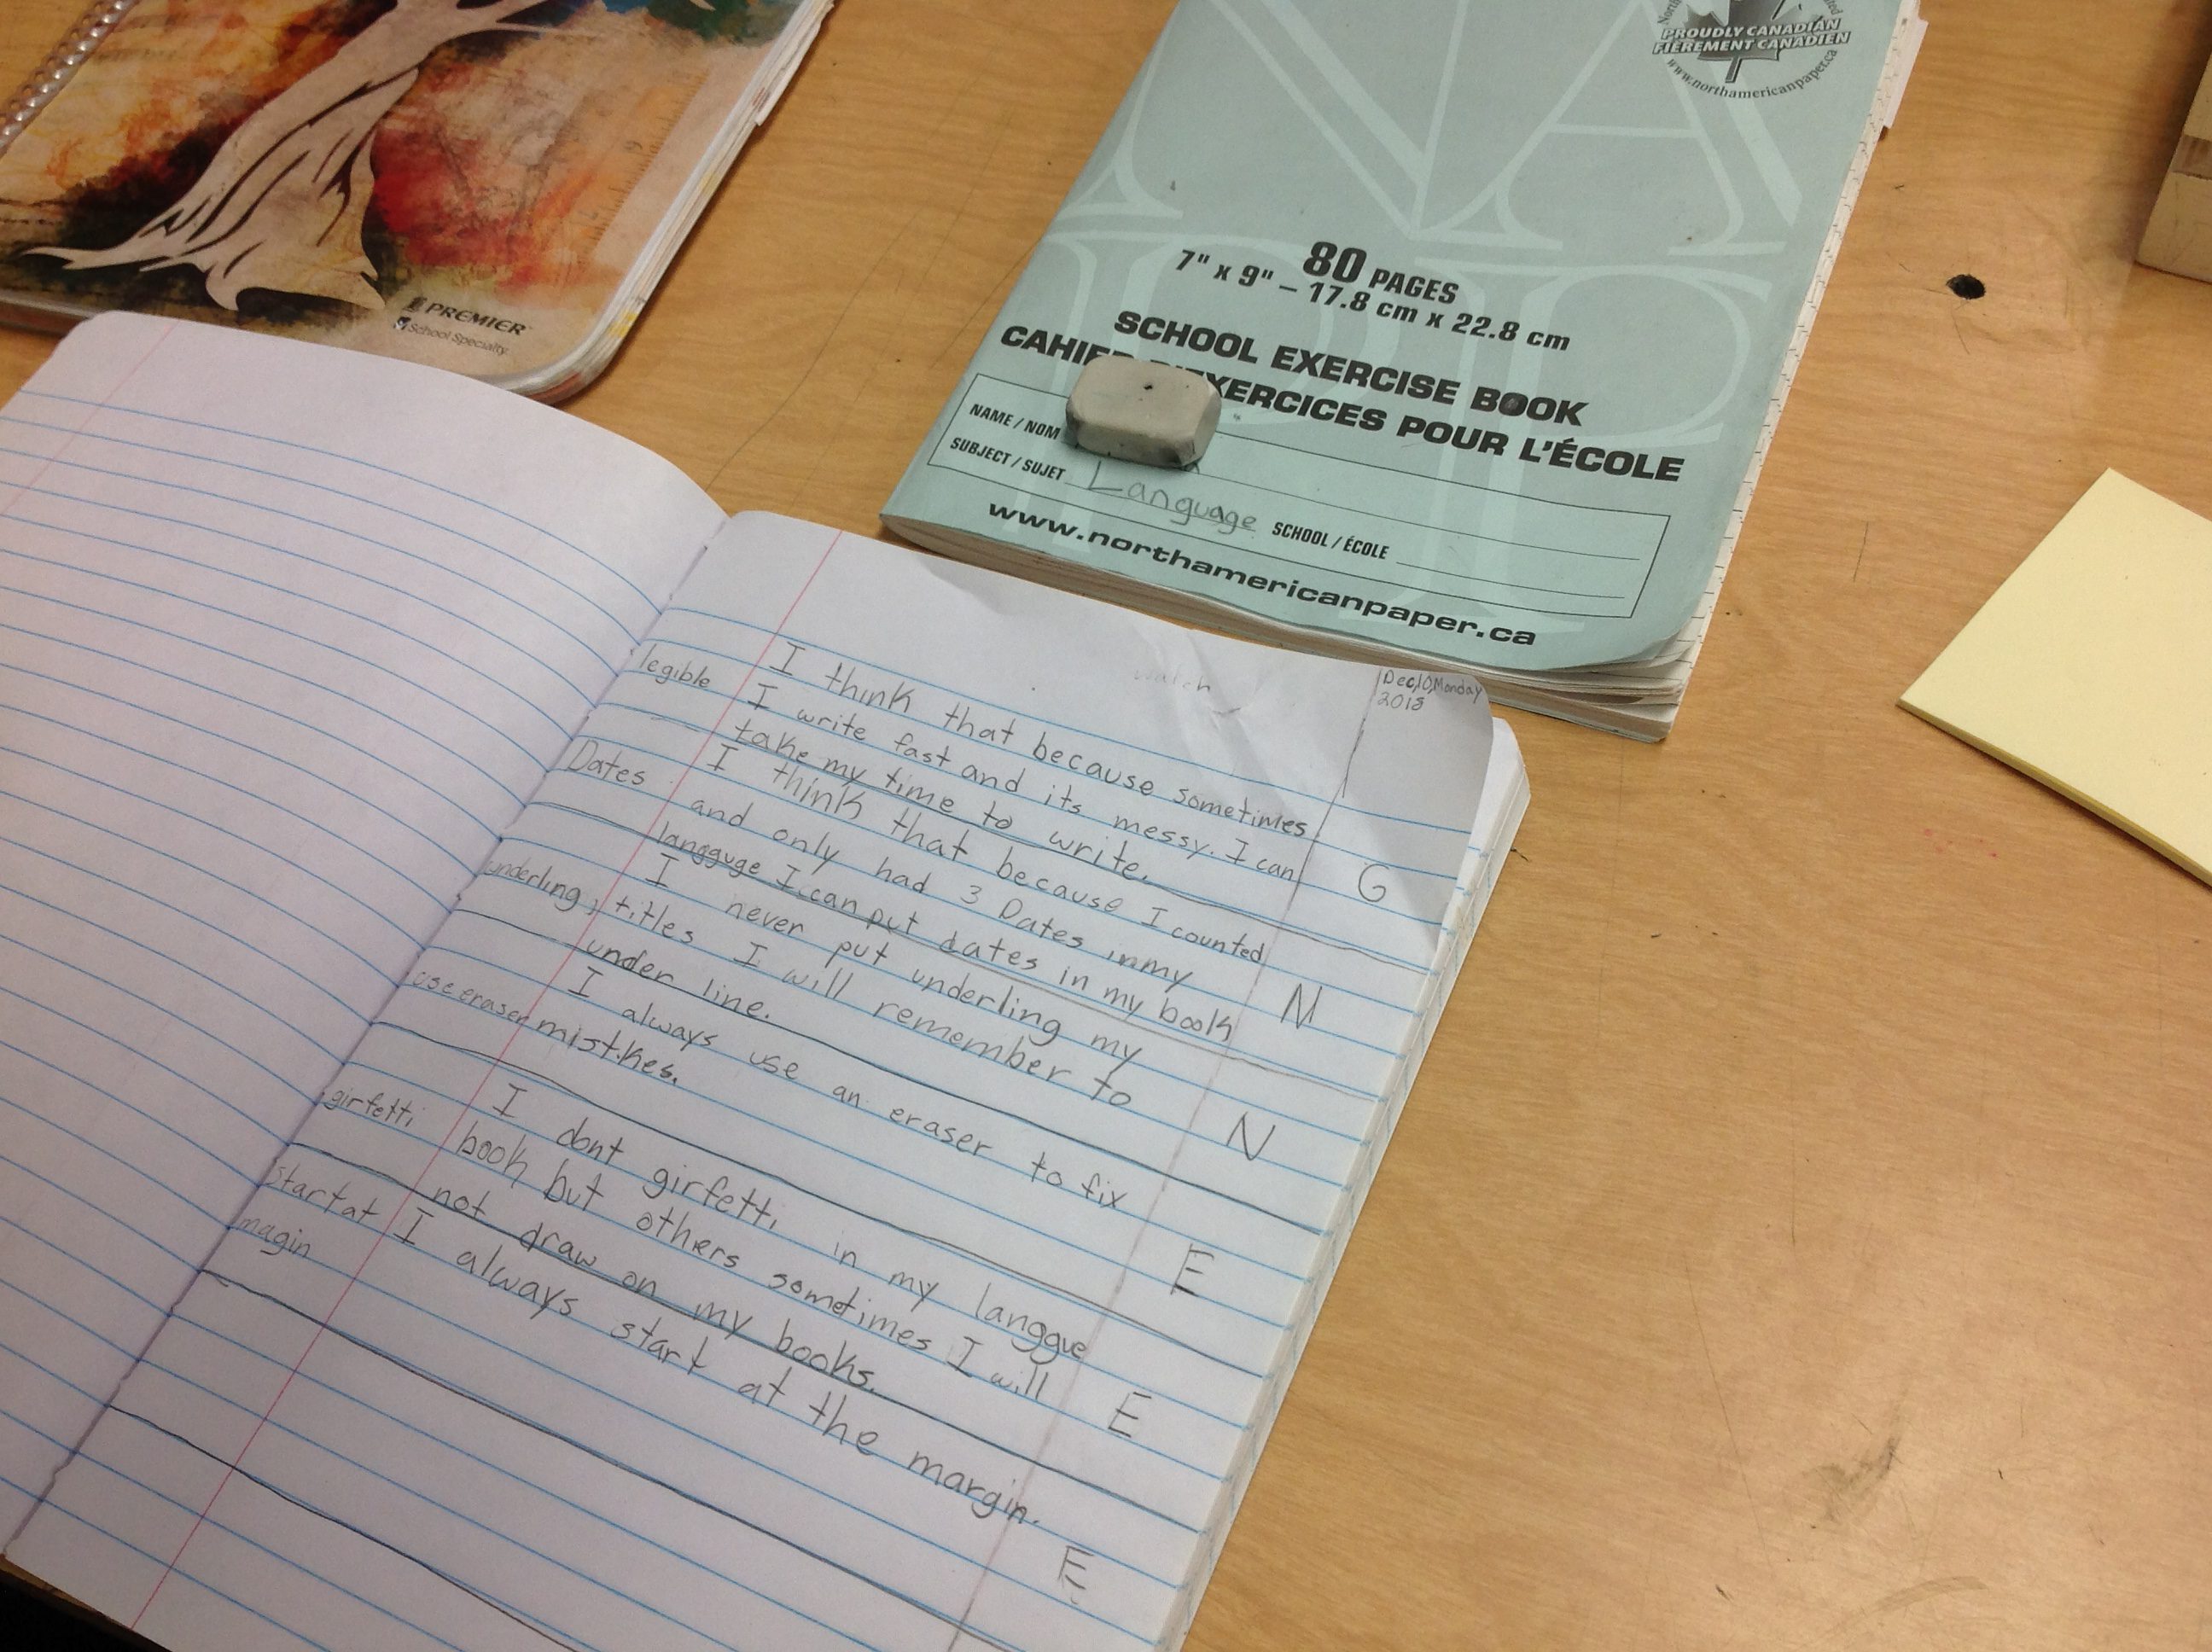 PREMIER
School Specialty
PROUDLY CANADIAN
FIÈREMENT CANADIEN
www.northamericanpaper.ca
80 PAGES
7" x 9" – 17.8 cm x 22.8 cm
SCHOOL EXERCISE BOOK
CAHIER D'EXERCICES POUR L'ÉCOLE
NAME / NOM
SUBJECT / SUJET Language SCHOOL / ÉCOLE
www.northamericanpaper.ca
Dec,10,Monday
2018
watch
legible I think that because sometimes
I write fast and its messy. I can
take my time to write. G
Dates I think that because I counted
and only had 3 Dates in my
langguge I can put dates in my book N
underling I never put underling my
titles I will remember to
under line. N
use eraser I always use an eraser to fix
mistkes. E
girfetti I dont girfetti in my langgue
book but others sometimes I will
not draw on my books. E
start at I always start at the margin. E
magin